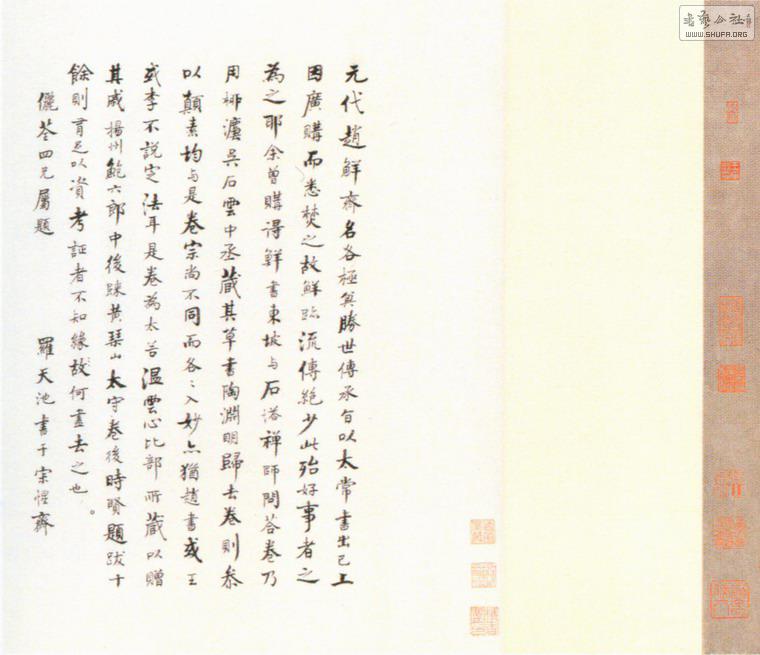 元代趙鮮齊名各極其勝世傳承旨以太常書出己上
因廣購而悉焚之故鮮跡流傳絕少此殆好事者之
為之耶余曾購得鮮書東坡與石塔禪師問荅卷乃
用柳濃吳石雲中丞藏其草書陶淵明歸去卷則参
以顛素均与是卷宗尚不同而各〻入妙亦猶趙書或王
或李不說定法耳是卷為太苦温雲心比部所藏以贈
其戚揚州鮑六郎中後踈黄琴山太守卷後時賢題跋十
餘則育足以資考証者不知緣故何盡去之也。
儷荃四兄屬題
羅天池書于宗惺齋
書藝公社
WWW.SHUFA.ORG